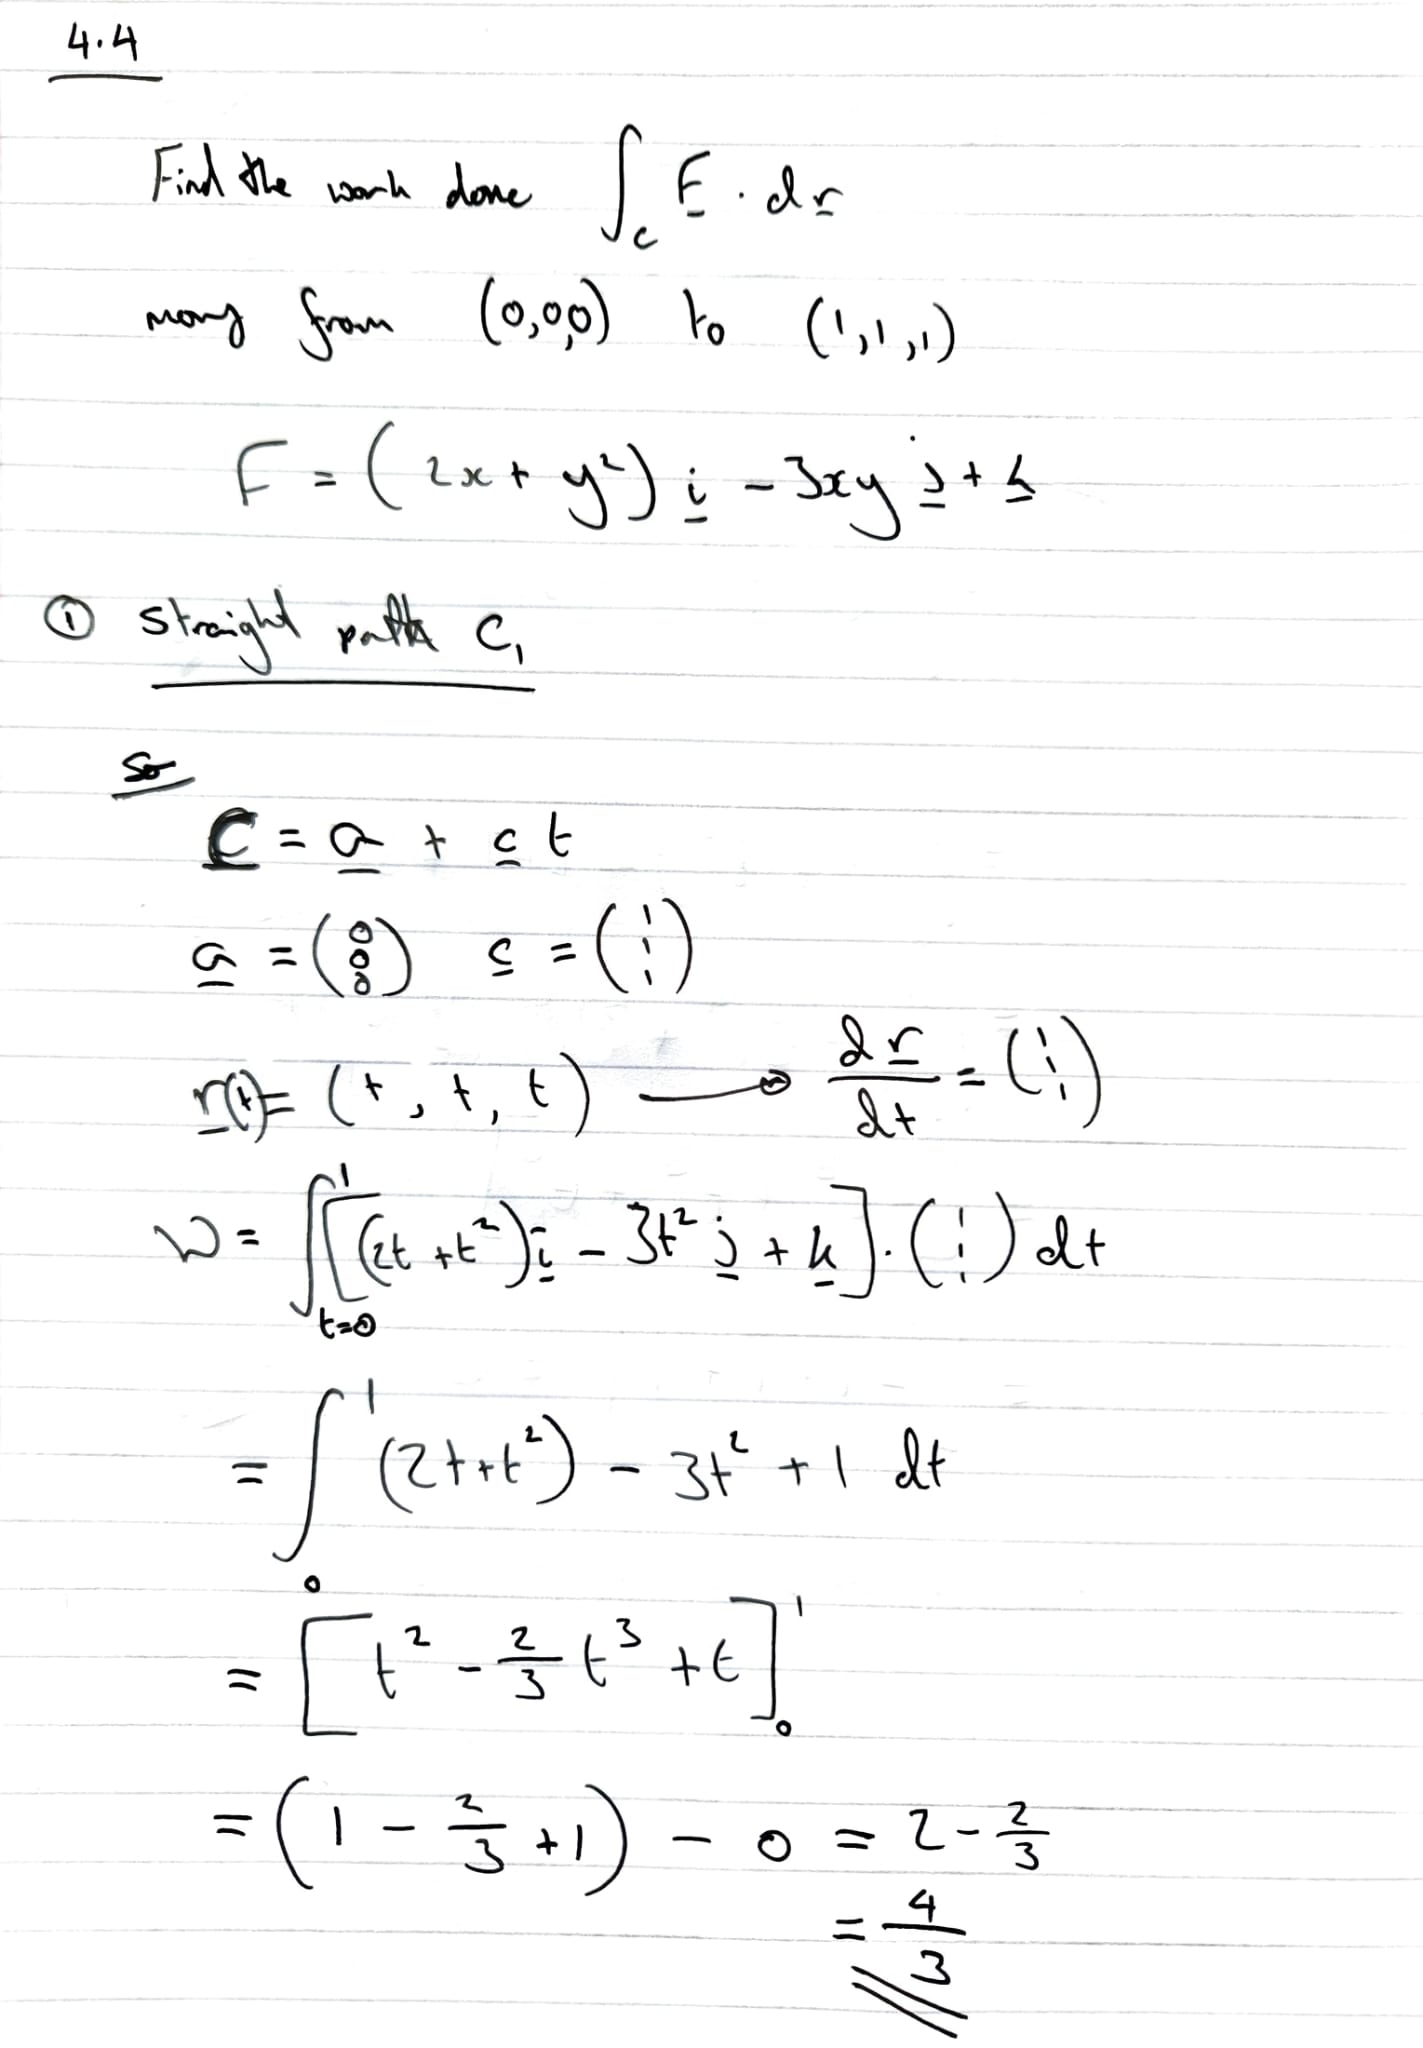 4.4
Find the work done ∫_C F · dr
moving from (0,0,0) to (1,1,1)
F = (2x + y²) i - 3xy j + k
① straight path C₁
So
C = a + c t
a = (0 0 0) c = (1 1 1)
r(t) = (t, t, t) → dr/dt = (1 1 1)
W = ∫_{t=0}^{1} [(2t + t²) i - 3t² j + k] · (1 1 1) dt
= ∫_0^1 (2t + t²) - 3t² + 1 dt
= [t² - 2/3 t³ + t]_0^1
= (1 - 2/3 + 1) - 0 = 2 - 2/3
= 4/3